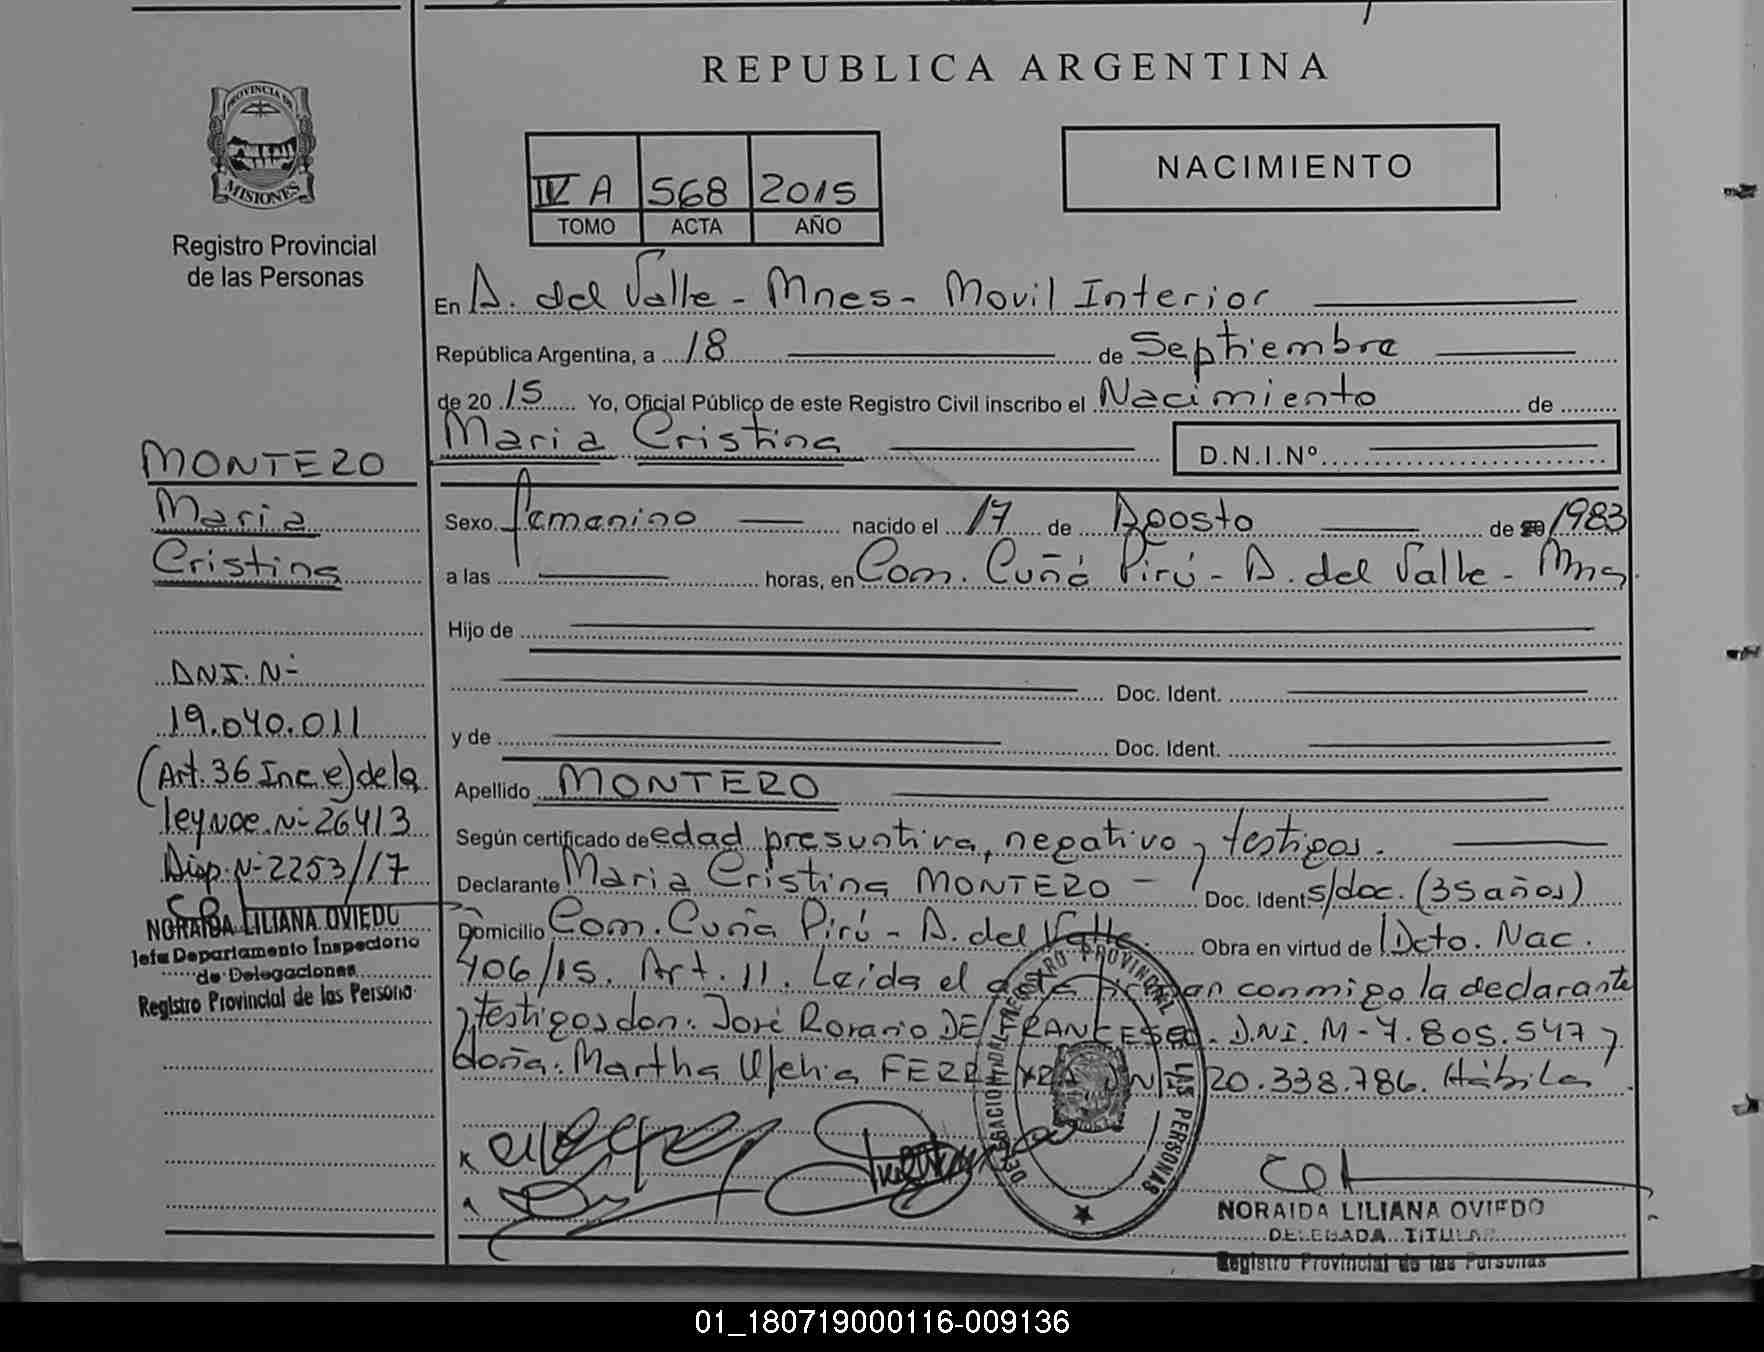 REPUBLICA ARGENTINA
PROVINCIA DE
MISIONES
Registro Provincial
de las Personas
NACIMIENTO
IV A 568 2015
TOMO ACTA AÑO
En A. del Valle - Mnes - Movil Interior
República Argentina, a 18 de Septiembre
de 2015 Yo, Oficial Público de este Registro Civil inscribo el Nacimiento de
Maria Cristina D.N.I.Nº
Sexo femenino nacido el 17 de Agosto de 1983
a las horas, en Com. Cuñá Pirú - A. del Valle - Mns.
Hijo de
Doc. Ident.
y de Doc. Ident.
Apellido MONTERO
Según certificado de edad presuntiva, negativo y testigos.
Declarante Maria Cristina MONTERO - Doc. Ident s/doc. (35 años)
Domicilio Com. Cuña Pirú - A. del Valle Obra en virtud de Dcto. Nac.
406/15. Art. 11. Leida el acta conmigo la declarante
y testigos don: José Rosario D.N.I. M-7.805.547 y
doña: Martha 20.338.786. Hábiles
MONTERO
Maria
Cristina
DNI. Nº
19.040.011
(Art. 36 Inc. e) de la
ley Nac. Nº 26413
Disp. Nº 2253/17
NORAIDA LILIANA OVIEDO
Jefa Departamento Inspectorio
de Delegaciones
Registro Provincial de las Persona
LAS PERSONAS
NORAIDA LILIANA OVIEDO
DELEGADA TITULAR
Registro Provincial de las Personas
01_180719000116-009136